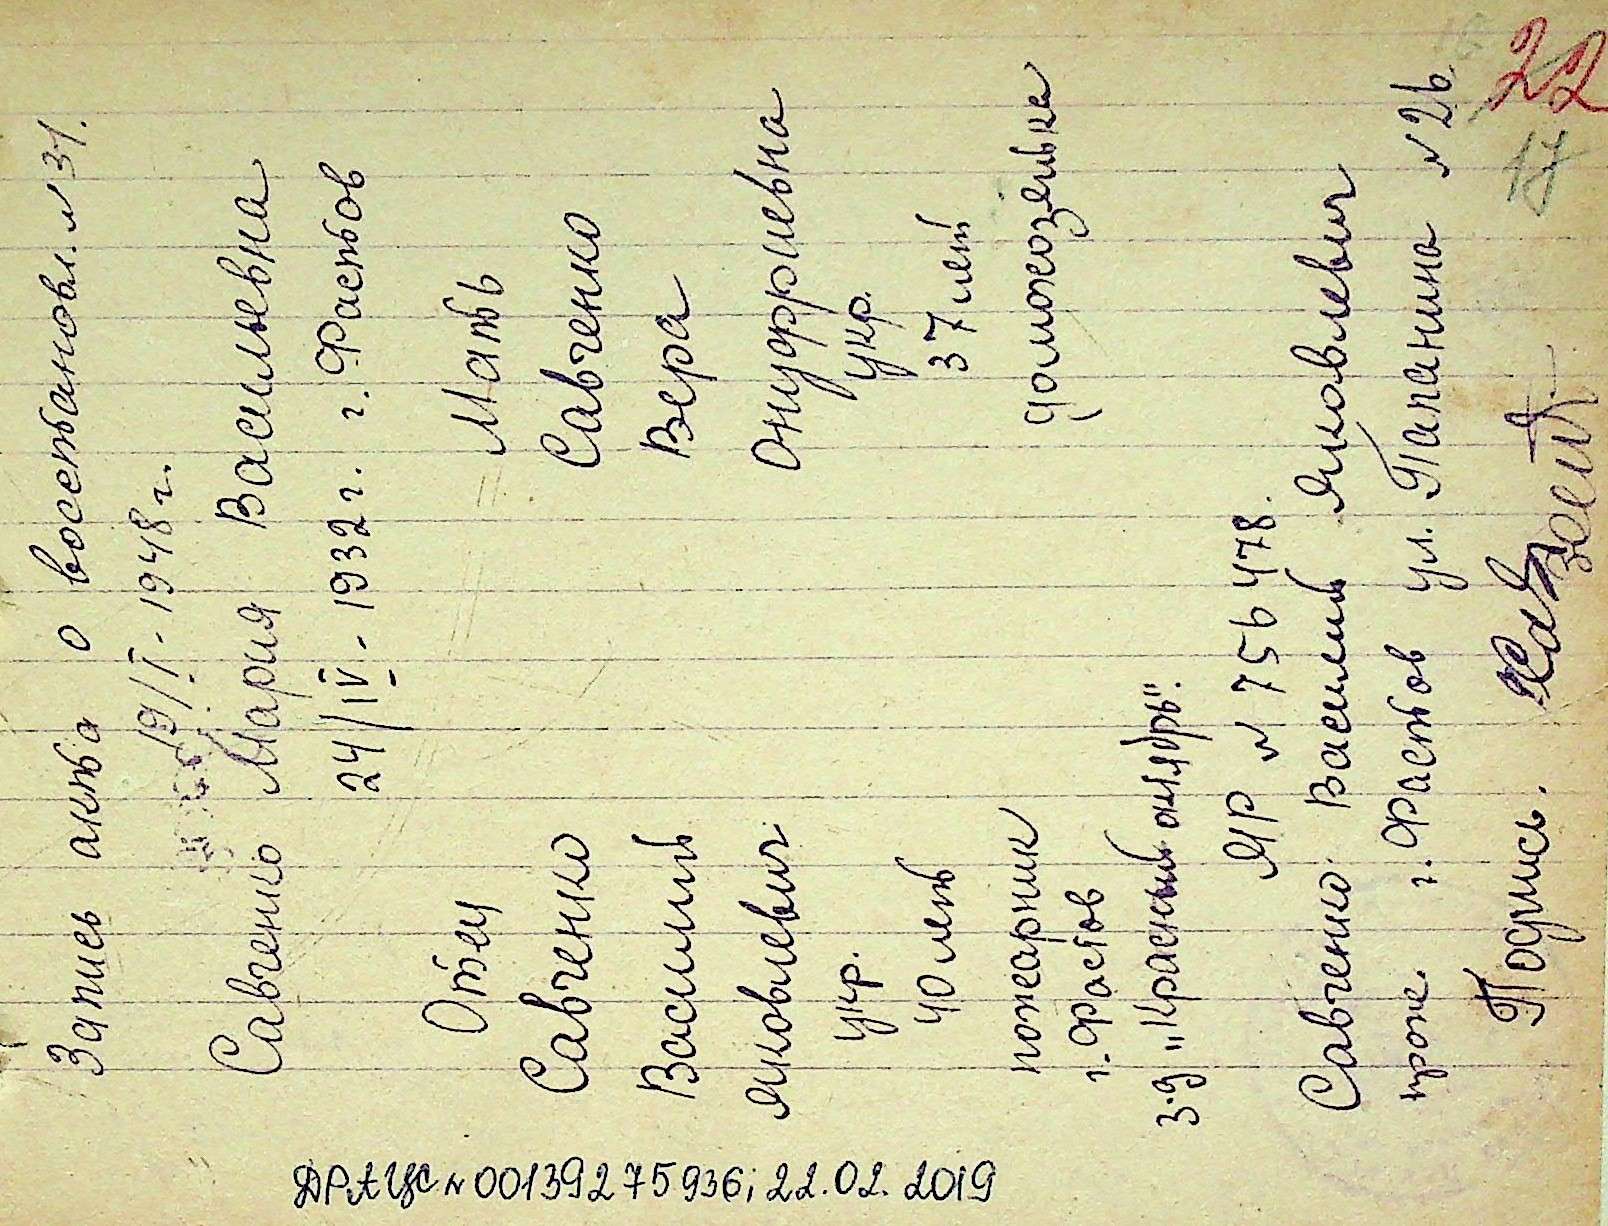 22
17
Запись акта о восстановл. N 31.
19/I - 1948 г.
Савченко Мария Васильевна
24/IV - 1932 г. г. Фастов
Отец Мать
Савченко Савченко
Василий Вера
Яковлевич Онуфриевна
укр. укр.
40 лет 37 лет
пожарник домохозяйка
г. Фастов
з-д "Красный октябрь".
ЯР N 756478.
Савченко Василий Яковлевич
прож. г. Фастов ул. Папанина N 26.
Подпись.
ДРАЦС N 00139275936; 22.02.2019